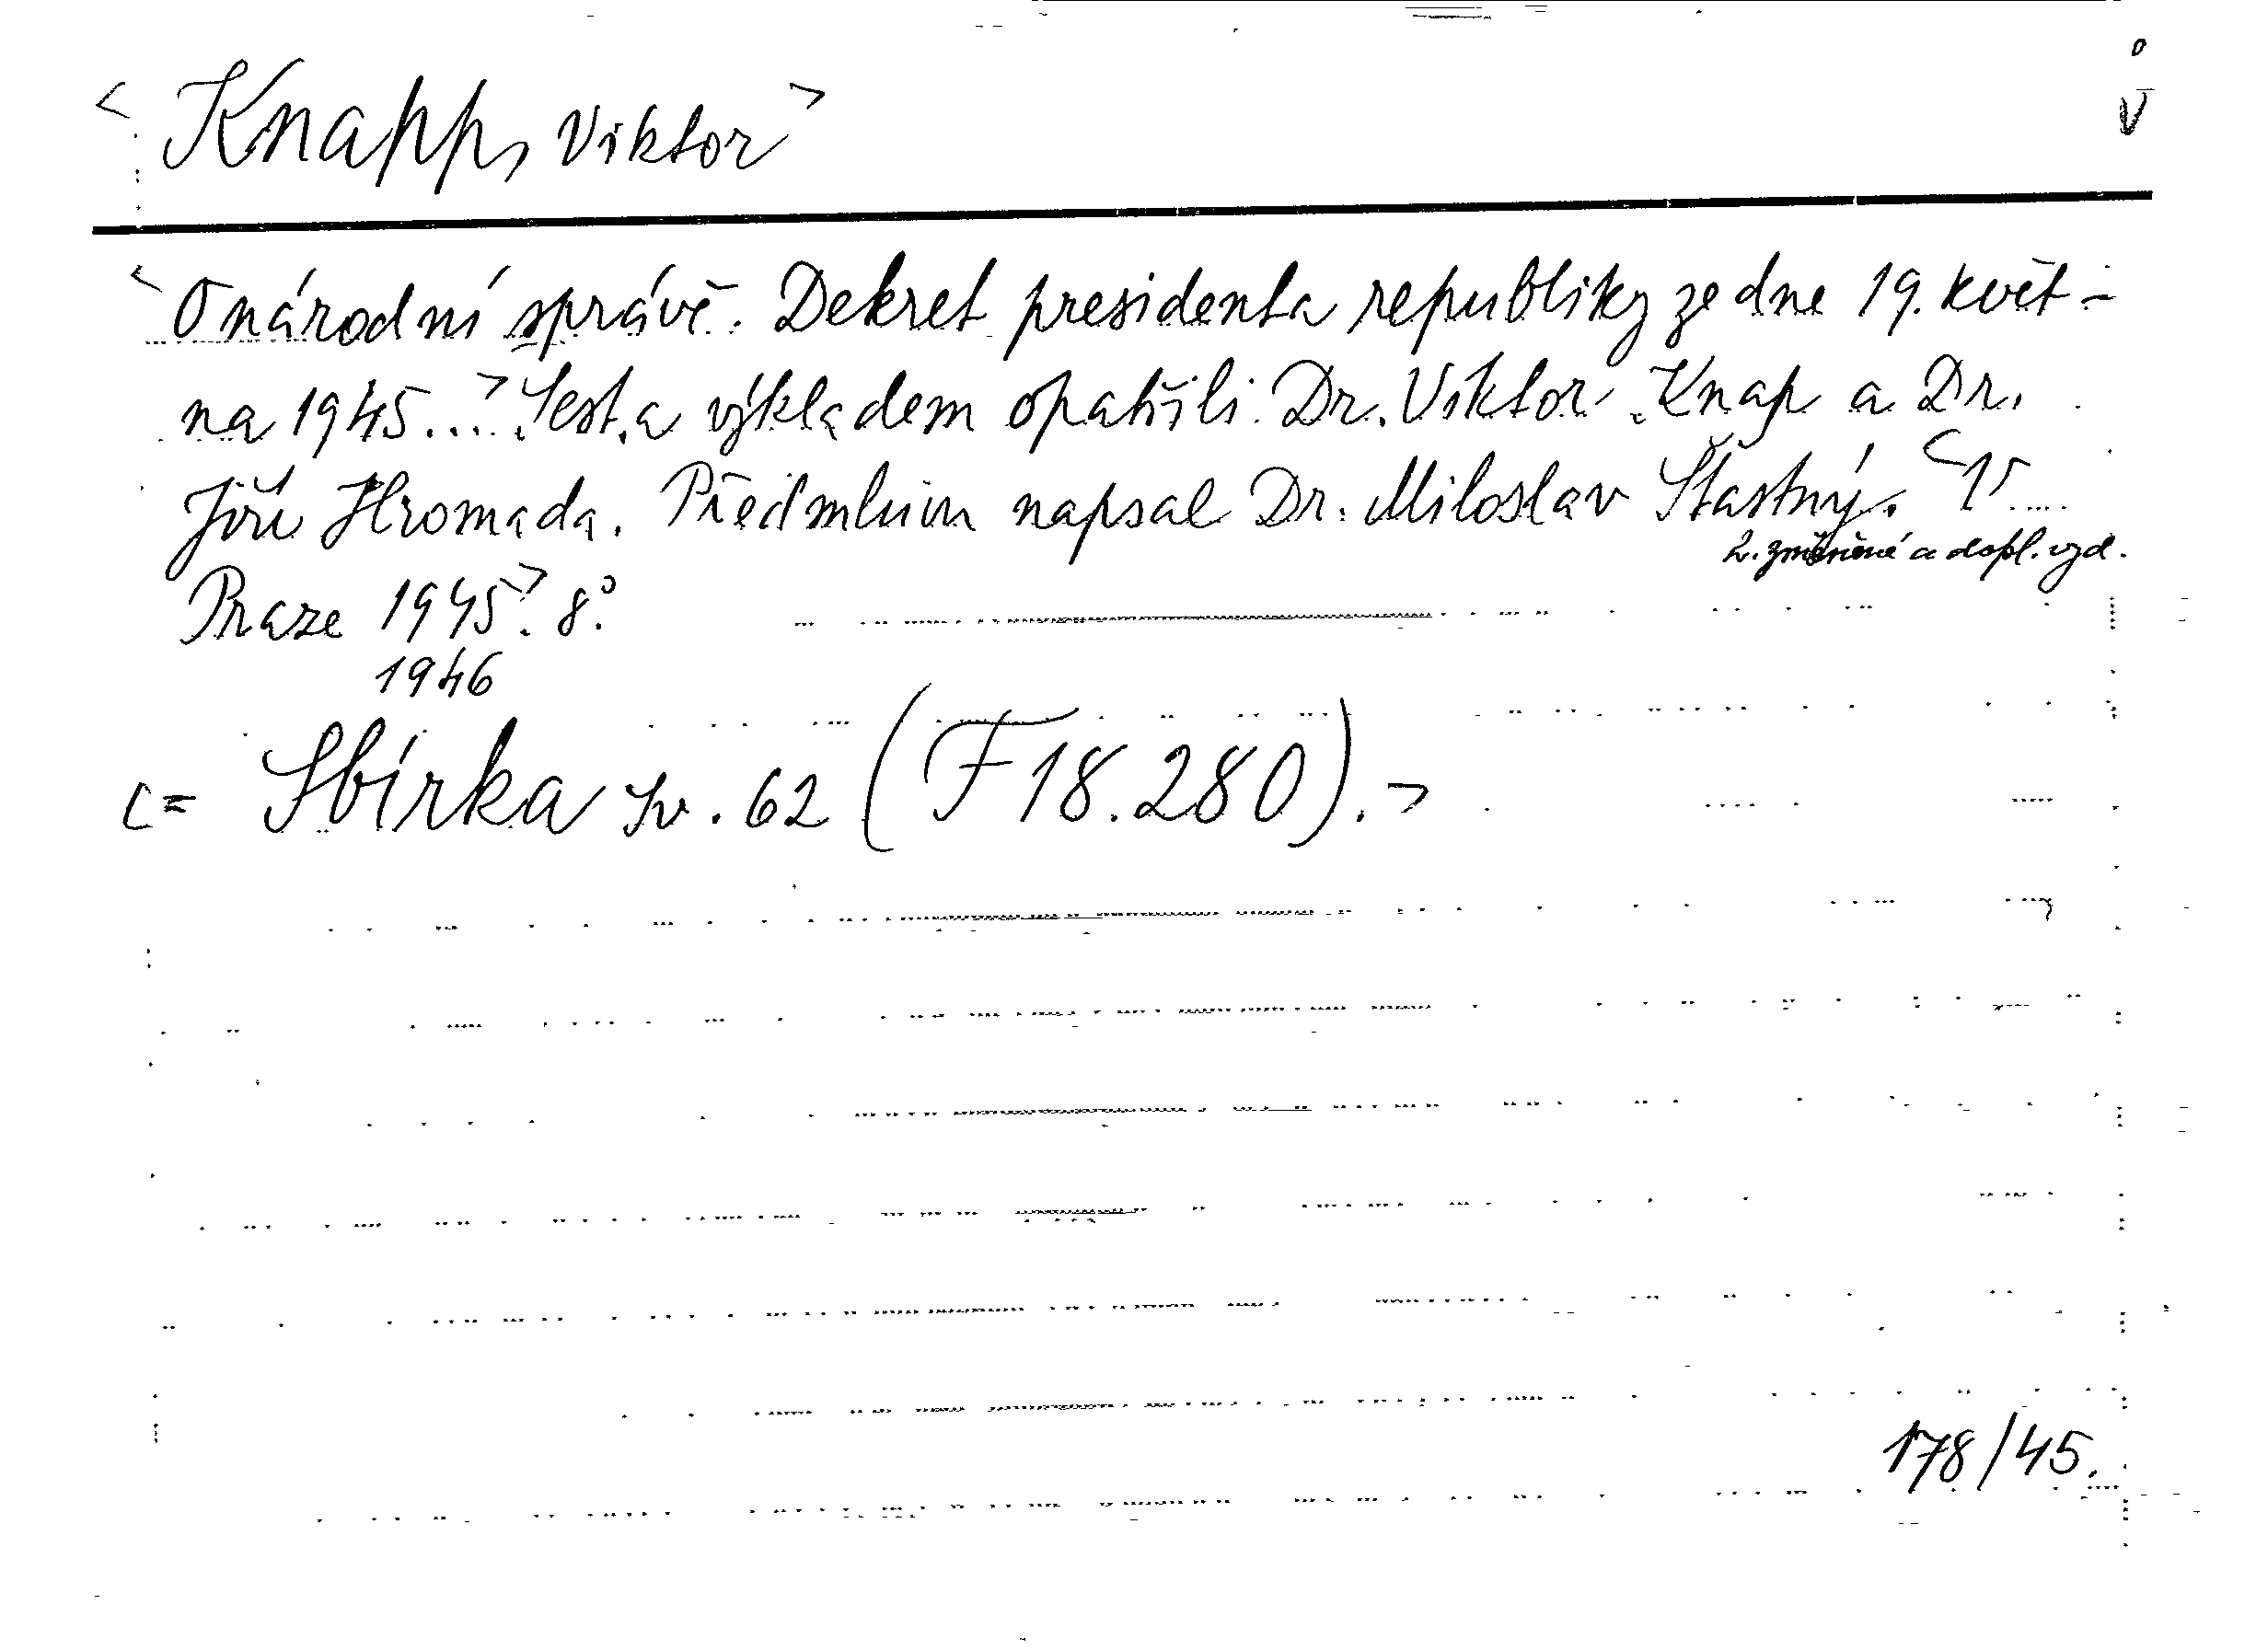 o
V
< Knapp, Viktor >
< O národní správě. Dekret presidenta republiky ze dne 19. květ-
na 1945...> Sest. a výkladem opatřili Dr. Viktor Knap a Dr.
Jiří Hromada. Předmluvu napsal Dr. Miloslav Šťastný. < V
2. změněné a dopl. vyd.
Praze 1945>. 8°.
1946
[= Sbírka sv. 62 (F 18.280).>
178/45.